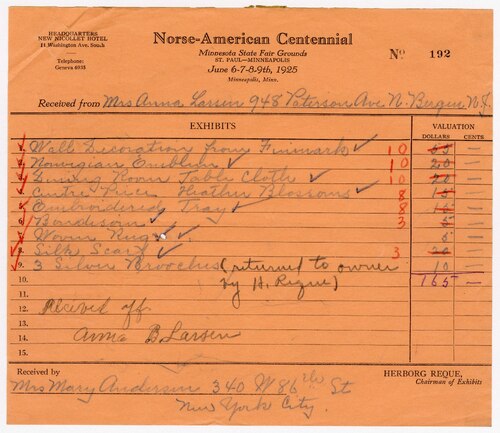 HEADQUARTERS
NEW NICOLLET HOTEL
14 Washington Ave. South
Telephone:
Geneva 4035
Norse-American Centennial
Minnesota State Fair Grounds
ST. PAUL—MINNEAPOLIS
June 6-7-8-9th, 1925
Minneapolis, Minn.
No 192
Received from Mrs Anna Larsen 948 Paterson Ave N. Bergen N.J.
EXHIBITS VALUATION
DOLLARS CENTS
1. Wall Decoration from Finmark 10 —
2. Norwegian Emblem 10 20 —
3. Dining Room Table Cloth 10 —
4. Centre Piece Heather Blossoms 8 —
5. Embroidered Tray 8 —
6. 3 —
7. Woven Rug —
8. Silk Scarf 3 —
9. 3 Silver Brooches (returned to owner 10 —
10. by H. Reque) 165 —
11.
12. Received off
13.
14. Anna B Larsen
15.
Received by HERBORG REQUE,
Chairman of Exhibits
Mrs Mary Anderson 340 W 86th St
New York City.